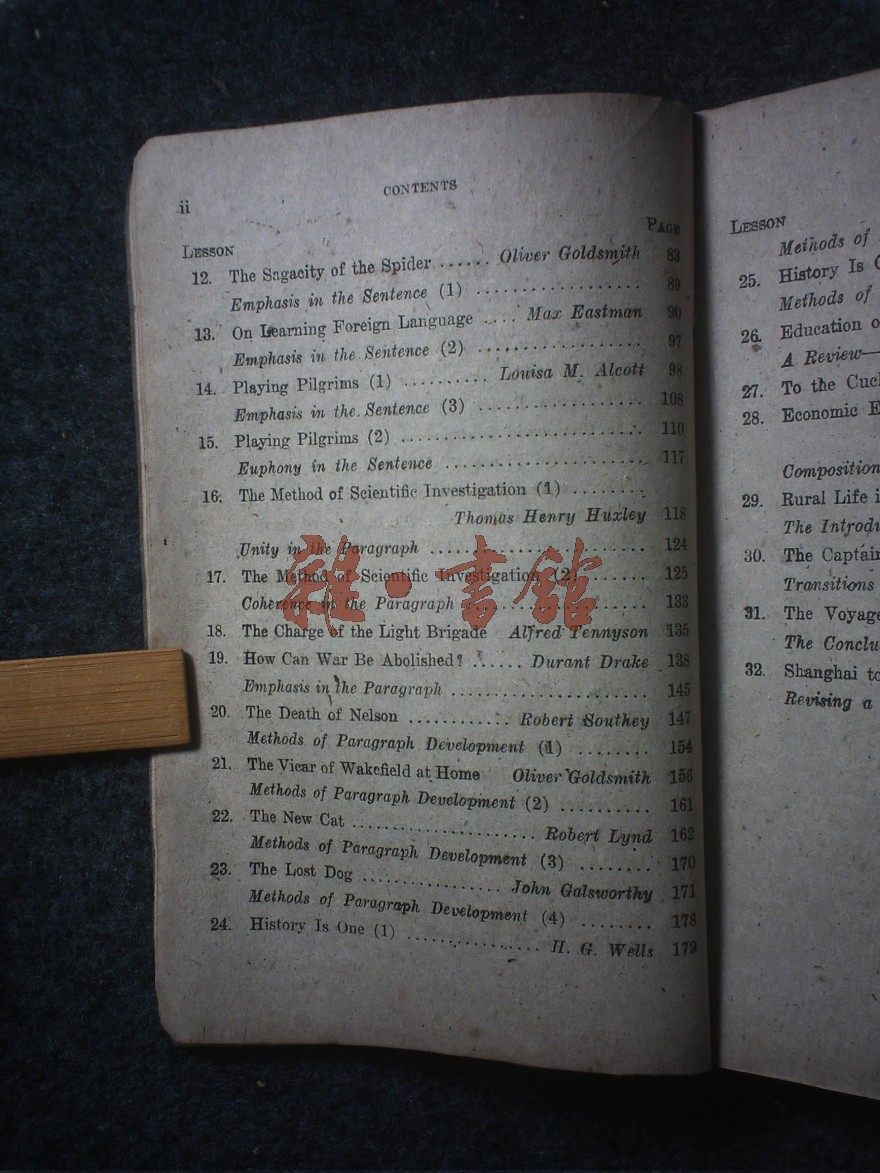 ii
CONTENTS
LESSON PAGE
12. The Sagacity of the Spider ...... Oliver Goldsmith 83
Emphasis in the Sentence (1) .................. 89
13. On Learning Foreign Language .... Max Eastman 90
Emphasis in the Sentence (2) .................. 97
14. Playing Pilgrims (1) .......... Louisa M. Alcott 98
Emphasis in the Sentence (3) .................. 108
15. Playing Pilgrims (2) .......................... 110
Euphony in the Sentence ...................... 117
16. The Method of Scientific Investigation (1) ........
Thomas Henry Huxley 118
Unity in the Paragraph ........................ 124
17. The Method of Scientific Investigation (2) ....... 125
Coherence in the Paragraph .................... 133
18. The Charge of the Light Brigade Alfred Tennyson 135
19. How Can War Be Abolished? ...... Durant Drake 138
Emphasis in the Paragraph ..................... 145
20. The Death of Nelson ........... Robert Southey 147
Methods of Paragraph Development (1) ........ 154
21. The Vicar of Wakefield at Home Oliver Goldsmith 156
Methods of Paragraph Development (2) .......... 161
22. The New Cat .................... Robert Lynd 162
Methods of Paragraph Development (3) ........ 170
23. The Lost Dog ............... John Galsworthy 171
Methods of Paragraph Development (4) ........ 178
24. History Is One (1) ............... H. G. Wells 179
雜·書館
LESSON
Methods of
25. History Is
Methods of
26. Education
A Review—
27. To the
28. Economic
Composition
29. Rural Life
The
30. The
Transitions
31. The
The
32. Shanghai
Revising a